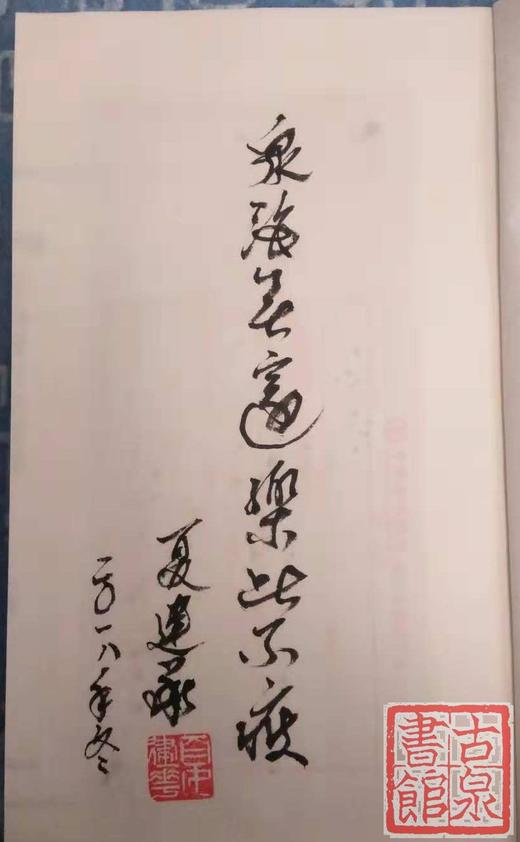 泉海無邊樂此不疲
夏建華
二〇一八年冬
古泉
書館